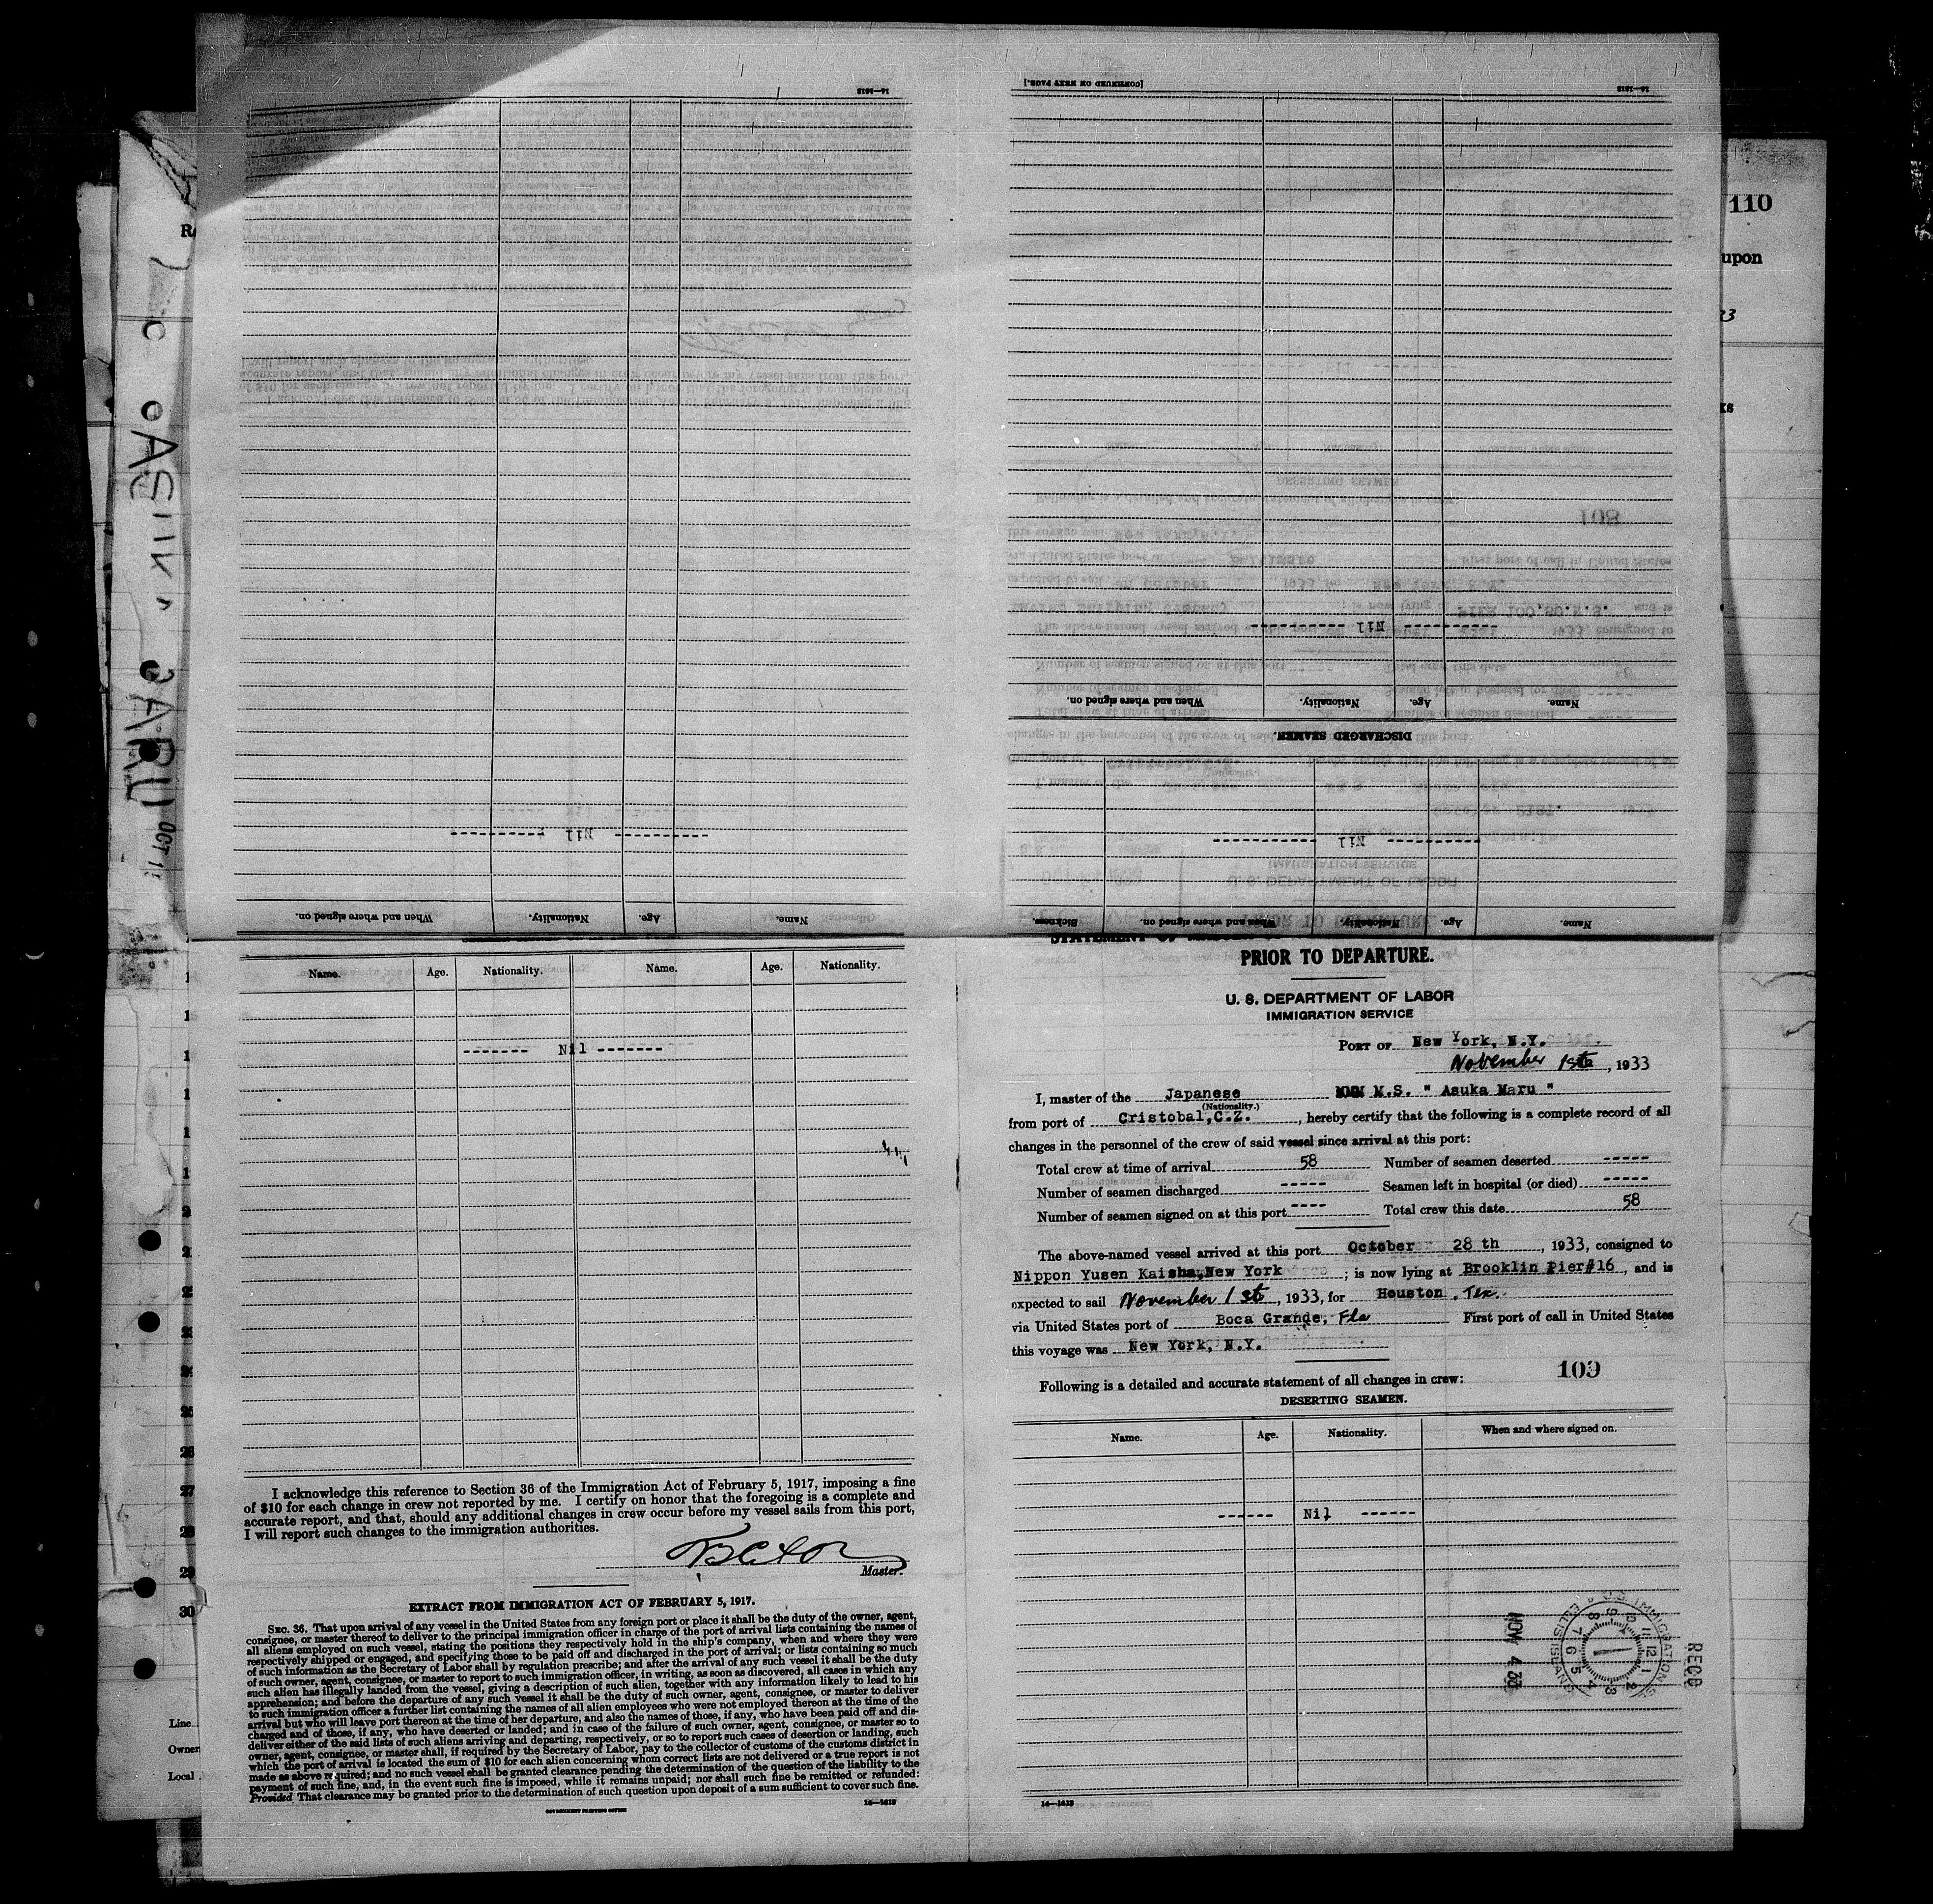 16—1613
When and where signed on.
Nationality.
Age.
Name.
---------- Nil ----------
[CONTINUED ON NEXT PAGE.]
16—1613
Name.
Age.
Nationality.
When and where signed on.
Sickness.
---------- Nil ----------
DISCHARGED SEAMEN.
Name.
Age.
Nationality.
When and where signed on.
---------- Nil ----------
110
upon
OCT 1
Name. Age. Nationality. Name. Age. Nationality.
------- Nil -------
27
28
29
30
Line
Owner
Local
I acknowledge this reference to Section 36 of the Immigration Act of February 5, 1917, imposing a fine
of $10 for each change in crew not reported by me. I certify on honor that the foregoing is a complete and
accurate report, and that, should any additional changes in crew occur before my vessel sails from this port,
I will report such changes to the immigration authorities.
Master.
EXTRACT FROM IMMIGRATION ACT OF FEBRUARY 5, 1917.
SEC. 36. That upon arrival of any vessel in the United States from any foreign port or place it shall be the duty of the owner, agent,
consignee, or master thereof to deliver to the principal immigration officer in charge of the port of arrival lists containing the names of
all aliens employed on such vessel, stating the positions they respectively hold in the ship's company, when and where they were
respectively shipped or engaged, and specifying those to be paid off and discharged in the port of arrival; or lists containing so much
of such information as the Secretary of Labor shall by regulation prescribe; and after the arrival of any such vessel it shall be the duty
of such owner, agent, consignee, or master to report to such immigration officer, in writing, as soon as discovered, all cases in which any
such alien has illegally landed from the vessel, giving a description of such alien, together with any information likely to lead to his
apprehension; and before the departure of any such vessel it shall be the duty of such owner, agent, consignee, or master to deliver
to such immigration officer a further list containing the names of all alien employees who were not employed thereon at the time of the
arrival but who will leave port thereon at the time of her departure, and also the names of those, if any, who have been paid off and dis-
charged and of those, if any, who have deserted or landed; and in case of the failure of such owner, agent, consignee, or master so to
deliver either of the said lists of such aliens arriving and departing, respectively, or so to report such cases of desertion or landing, such
owner, agent, consignee, or master shall, if required by the Secretary of Labor, pay to the collector of customs of the customs district in
which the port of arrival is located the sum of $10 for each alien concerning whom correct lists are not delivered or a true report is not
made as above required; and no such vessel shall be granted clearance pending the determination of the question of the liability to the
payment of such fine, and, in the event such fine is imposed, while it remains unpaid; nor shall such fine be remitted or refunded:
Provided That clearance may be granted prior to the determination of such question upon deposit of a sum sufficient to cover such fine.
GOVERNMENT PRINTING OFFICE
16—1613
PRIOR TO DEPARTURE.
U. S. DEPARTMENT OF LABOR
IMMIGRATION SERVICE
PORT OF New York, N.Y.
November 1st, 1933
I, master of the Japanese M.S. " Asuka Maru "
(Nationality.)
from port of Cristobal, C.Z., hereby certify that the following is a complete record of all
changes in the personnel of the crew of said vessel since arrival at this port:
Total crew at time of arrival 58 Number of seamen deserted -----
Number of seamen discharged ----- Seamen left in hospital (or died) -----
Number of seamen signed on at this port ---- Total crew this date 58
The above-named vessel arrived at this port October 28 th, 1933, consigned to
Nippon Yusen Kaisha, New York; is now lying at Brooklin Pier#16, and is
expected to sail November 1st, 1933, for Houston, Tex.
via United States port of Boca Grande, Fla First port of call in United States
this voyage was New York, N.Y.
109
Following is a detailed and accurate statement of all changes in crew:
DESERTING SEAMEN.
Name. Age. Nationality. When and where signed on.
------ Nil ------
REC'D
U.S. IMMIGRATION
ELLIS ISLAND
NOV 4 33
16—1613